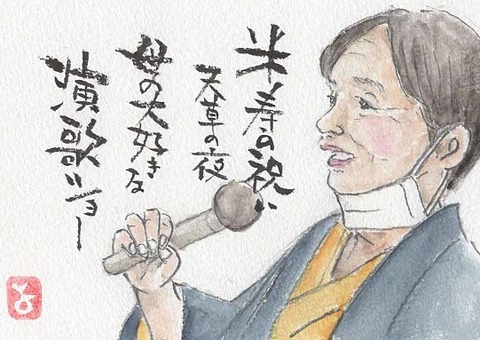 米寿の祝い
天草の夜
母の大好きな
演歌ショー